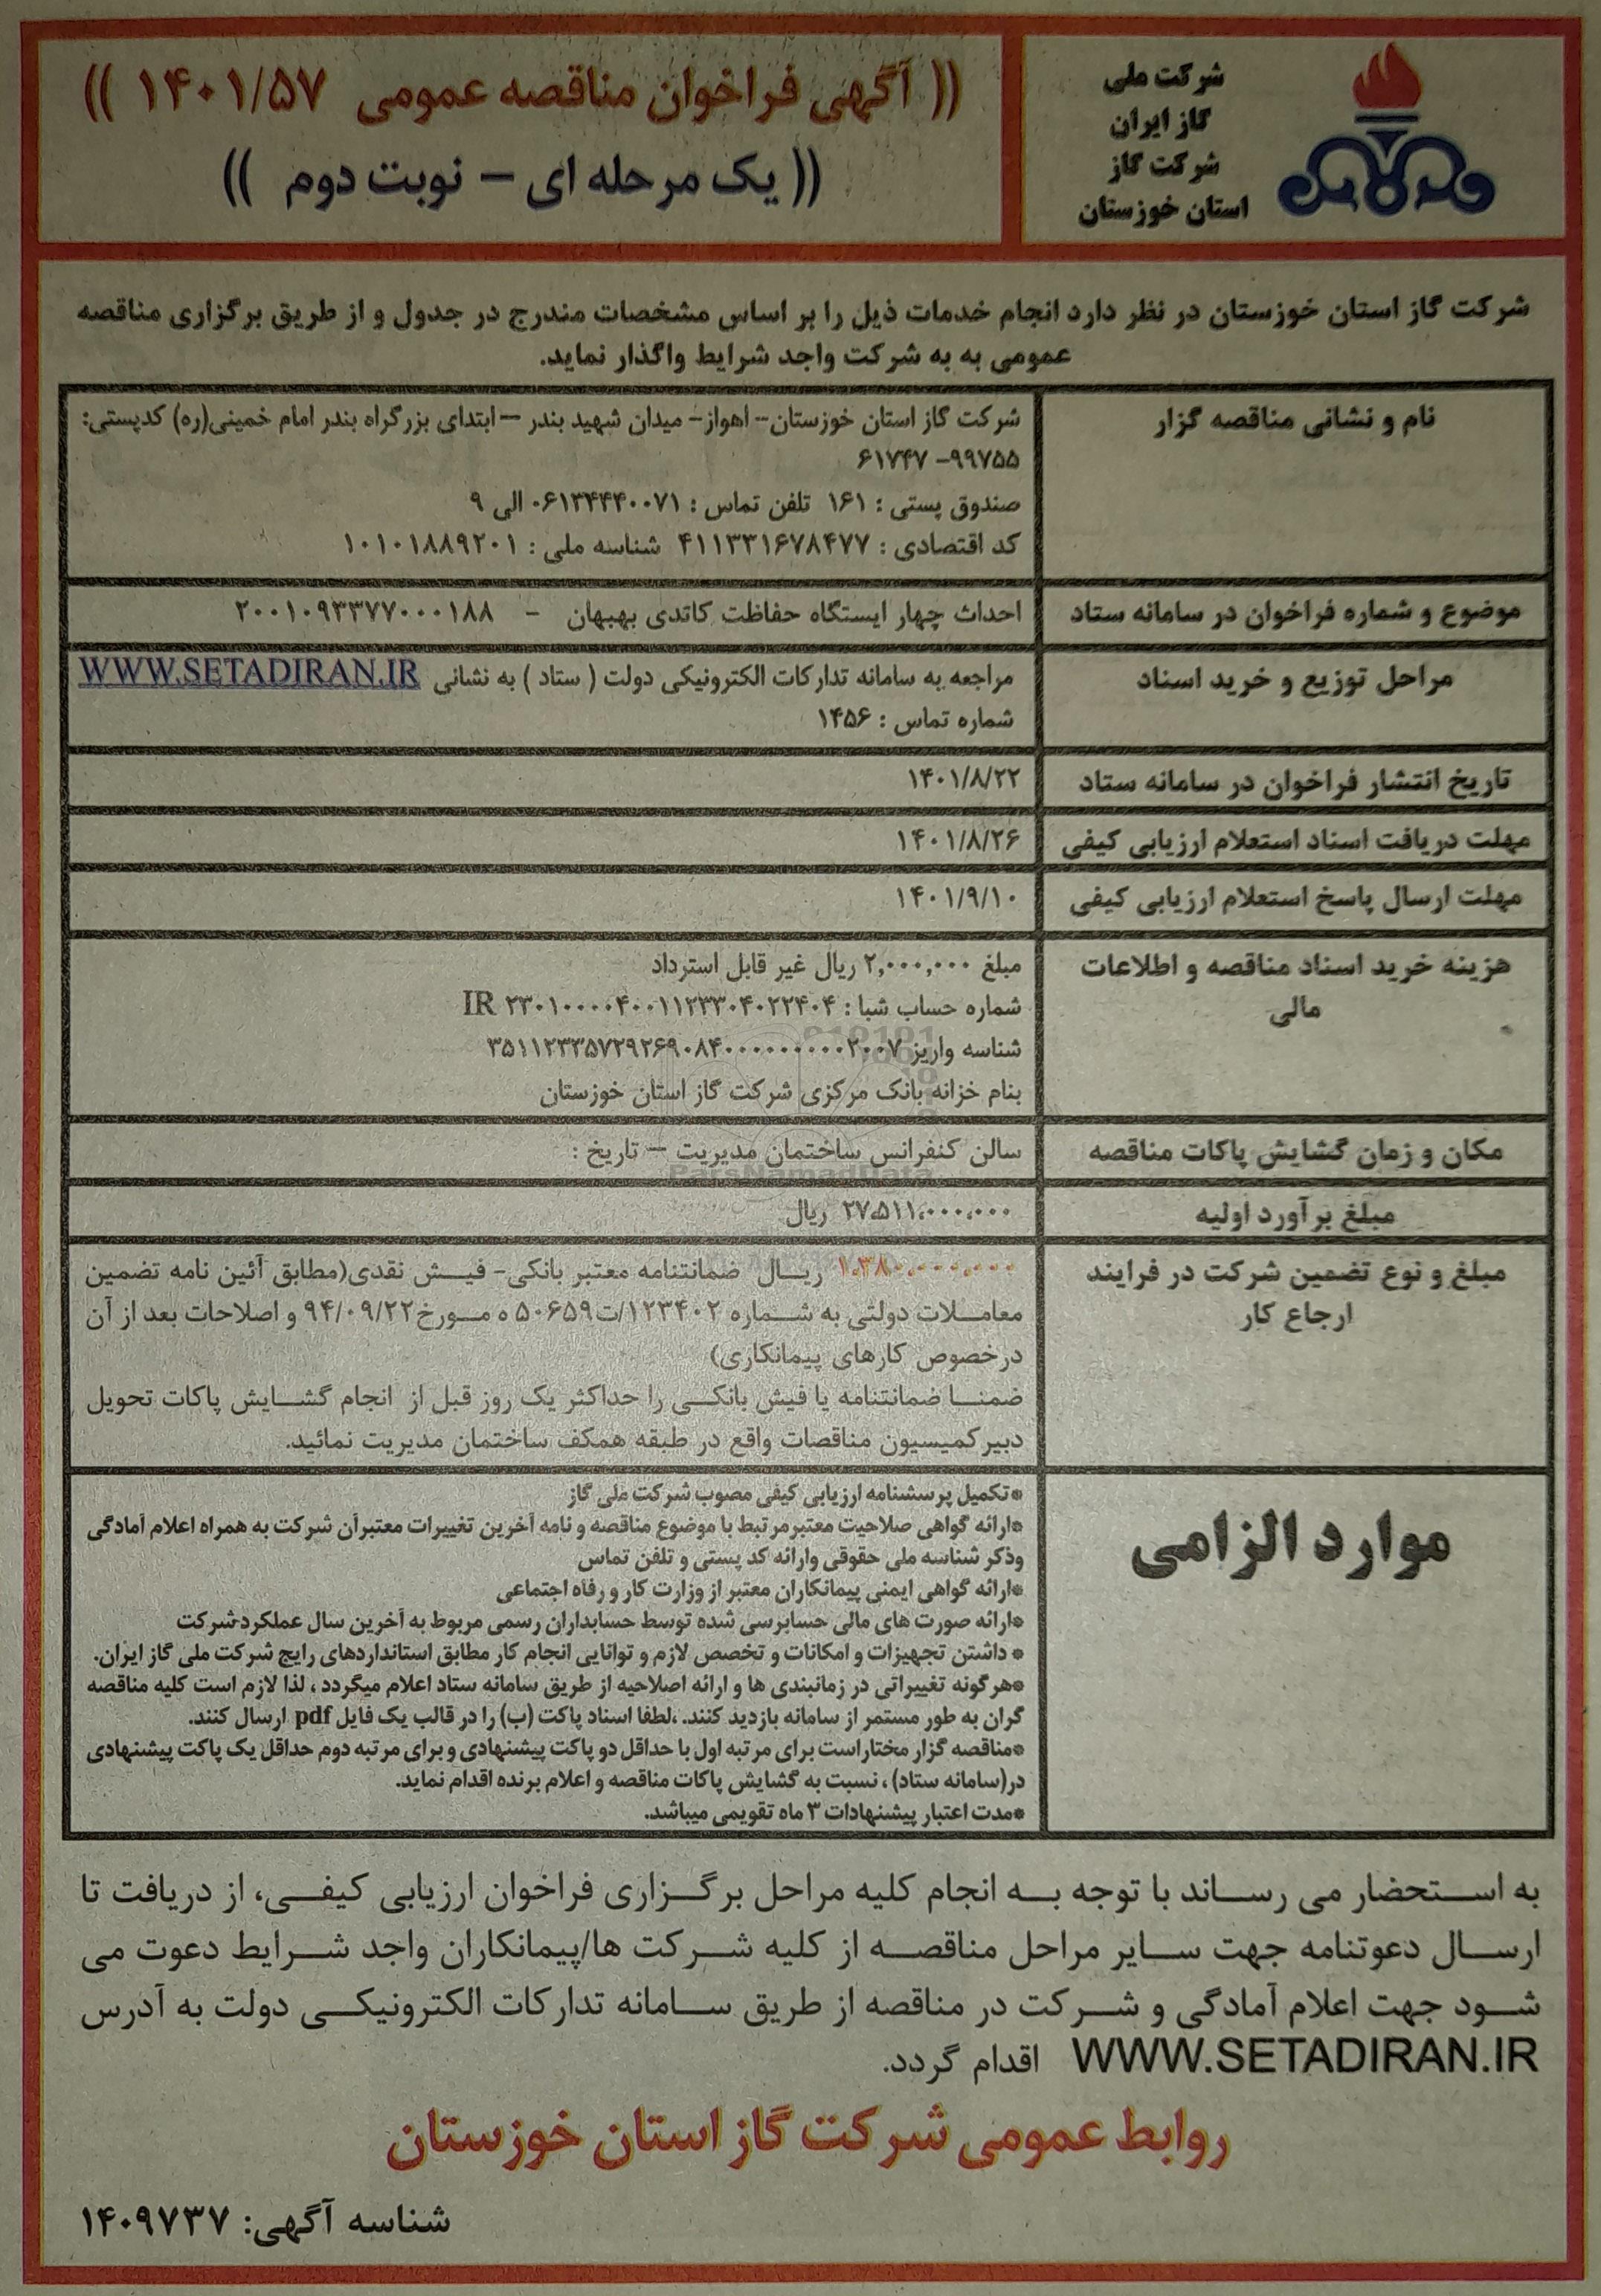 شرکت ملی
گاز ایران
شرکت گاز
استان خوزستان
(( آگهی فراخوان مناقصه عمومی ۱۴۰۱/۵۷ ))
(( یک مرحله ای – نوبت دوم ))
شرکت گاز استان خوزستان در نظر دارد انجام خدمات ذیل را بر اساس مشخصات مندرج در جدول و از طریق برگزاری مناقصه
عمومی به به شرکت واجد شرایط واگذار نماید.
نام و نشانی مناقصه گزار
شرکت گاز استان خوزستان-- اهواز- میدان شهید بندر –ابتدای بزرگراه بندر امام خمینی(ره) کدپستی:
۹۹۷۵۵- ۶۱۷۴۷
صندوق پستی : ۱۶۱ تلفن تماس : ۰۶۱۳۴۴۴۰۰۷۱ الی ۹
کد اقتصادی : ۴۱۱۳۳۱۶۷۸۴۷۷ شناسه ملی : ۱۰۱۰۱۸۸۹۲۰۱
موضوع و شماره فراخوان در سامانه ستاد
احداث چهار ایستگاه حفاظت کاتدی بهبهان - ۲۰۰۱۰۹۳۳۷۷۰۰۰۱۸۸
مراحل توزیع و خرید اسناد
مراجعه به سامانه تدارکات الکترونیکی دولت ( ستاد ) به نشانی WWW.SETADIRAN.IR
شماره تماس : ۱۴۵۶
تاریخ انتشار فراخوان در سامانه ستاد
۱۴۰۱/۸/۲۲
مهلت دریافت اسناد استعلام ارزیابی کیفی
۱۴۰۱/۸/۲۶
مهلت ارسال پاسخ استعلام ارزیابی کیفی
۱۴۰۱/۹/۱۰
هزینه خرید اسناد مناقصه و اطلاعات
مالی
مبلغ ۲,۰۰۰,۰۰۰ ریال غیر قابل استرداد
شماره حساب شبا : IR ۲۳۰۱۰۰۰۰۴۰۰۱۱۲۳۳۰۴۰۲۲۴۰۴
شناسه واریز ۳۵۱۱۲۳۳۵۷۲۹۲۶۹۰۸۴۰۰۰۰۰۰۰۰۰۰۲۰۰۷
بنام خزانه بانک مرکزی شرکت گاز استان خوزستان
مکان و زمان گشایش پاکات مناقصه
سالن کنفرانس ساختمان مدیریت – تاریخ :
ParsNamadData
مبلغ برآورد اولیه
۲۷،۵۱۱،۰۰۰،۰۰۰ ریال
مبلغ و نوع تضمین شرکت در فرایند
ارجاع کار
۱،۳۸۰،۰۰۰،۰۰۰ ریال ضمانتنامه معتبر بانکی- فیش نقدی(مطابق آئین نامه تضمین
معاملات دولتی به شماره ۱۲۳۴۰۲/ت۵۰۶۵۹ ه مورخ۹۴/۰۹/۲۲ و اصلاحات بعد از آن
درخصوص کارهای پیمانکاری)
ضمنا ضمانتنامه یا فیش بانکی را حداکثر یک روز قبل از انجام گشایش پاکات تحویل
دبیرکمیسیون مناقصات واقع در طبقه همکف ساختمان مدیریت نمائید.
موارد الزامی
*تکمیل پرسشنامه ارزیابی کیفی مصوب شرکت ملی گاز
*ارائه گواهی صلاحیت معتبرمرتبط با موضوع مناقصه و نامه آخرین تغییرات معتبرآن شرکت به همراه اعلام آمادگی
وذکر شناسه ملی حقوقی وارائه کد پستی و تلفن تماس
*ارائه گواهی ایمنی پیمانکاران معتبر از وزارت کار و رفاه اجتماعی
*ارائه صورت های مالی حسابرسی شده توسط حسابداران رسمی مربوط به آخرین سال عملکرد-شرکت
* داشتن تجهیزات و امکانات و تخصص لازم و توانایی انجام کار مطابق استانداردهای رایج شرکت ملی گاز ایران.
*هرگونه تغییراتی در زمانبندی ها و ارائه اصلاحیه از طریق سامانه ستاد اعلام میگردد ، لذا لازم است کلیه مناقصه
گران به طور مستمر از سامانه بازدید کنند. ،لطفا اسناد پاکت (ب) را در قالب یک فایل pdf ارسال کنند.
*مناقصه گزار مختاراست برای مرتبه اول با حداقل دو پاکت پیشنهادی و برای مرتبه دوم حداقل یک پاکت پیشنهادی
در(سامانه ستاد) ، نسبت به گشایش پاکات مناقصه و اعلام برنده اقدام نماید.
*مدت اعتبار پیشنهادات ۳ ماه تقویمی میباشد.
به استحضار می رساند با توجه به انجام کلیه مراحل برگزاری فراخوان ارزیابی کیفی، از دریافت تا
ارسال دعوتنامه جهت سایر مراحل مناقصه از کلیه شرکت ها/پیمانکاران واجد شرایط دعوت می
شود جهت اعلام آمادگی و شرکت در مناقصه از طریق سامانه تدارکات الکترونیکی دولت به آدرس
WWW.SETADIRAN.IR اقدام گردد.
روابط عمومی شرکت گاز استان خوزستان
شناسه آگهی: ۱۴۰۹۷۳۷